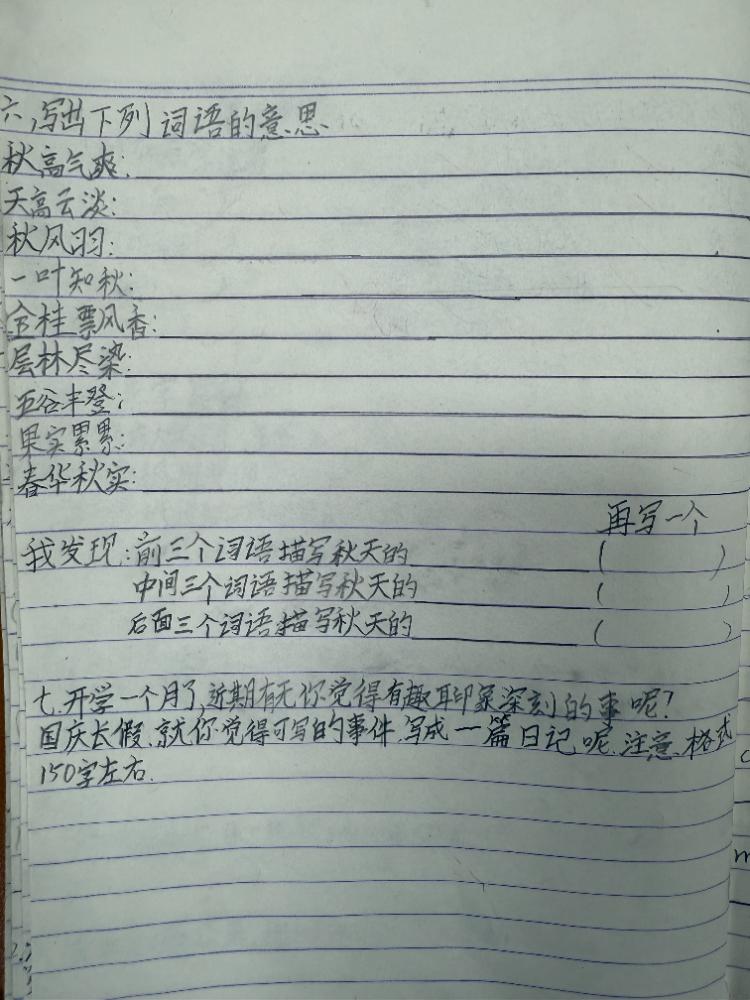 六,写出下列词语的意思
秋高气爽:
天高云淡:
秋风羽:
一叶知秋:
金桂飘香:
层林尽染:
五谷丰登:
果实累累:
春华秋实:
再写一个
我发现:前三个词语描写秋天的 ( )
中间三个词语描写秋天的 ( )
后面三个词语描写秋天的 ( )
七.开学一个月了,近期有无你觉得有趣印象深刻的事呢?
国庆长假.就你觉得可写的事件.写成一篇日记呢.注意.格式
150字左右.